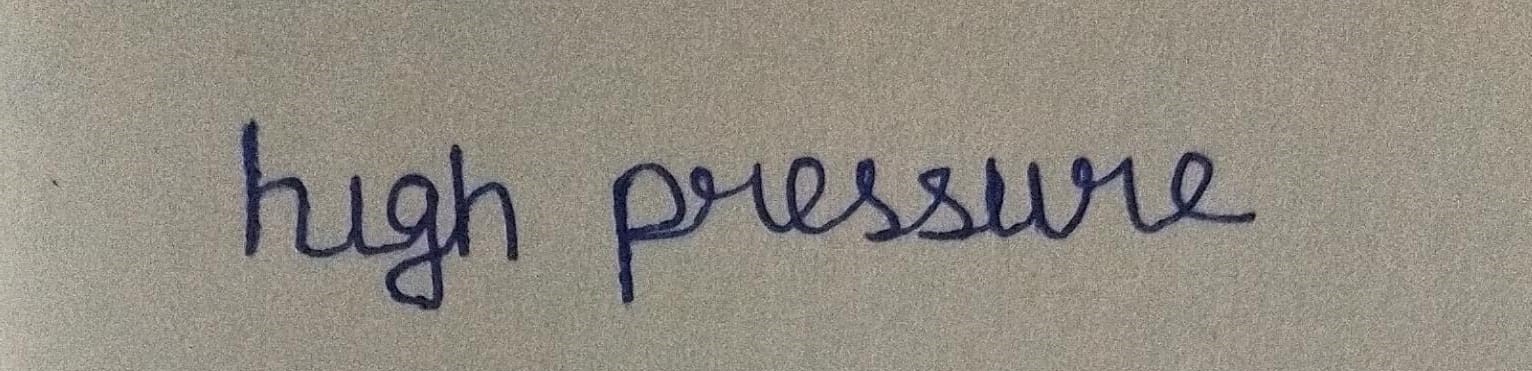 high pressure